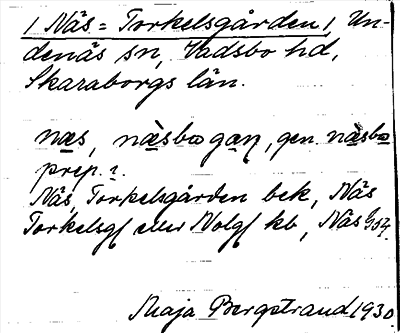 1 Näs = Torkelsgården 1, Un-
denäs sn, Vadsbo hd,
Skaraborgs län.
næs, næsbo gaŋ, gen. næsbo
prep. i.
Näs, Torkelsgården bek, Näs
Torkelsg/ eller Nolg/ kb, Näs
Maja Bergstrand 1930